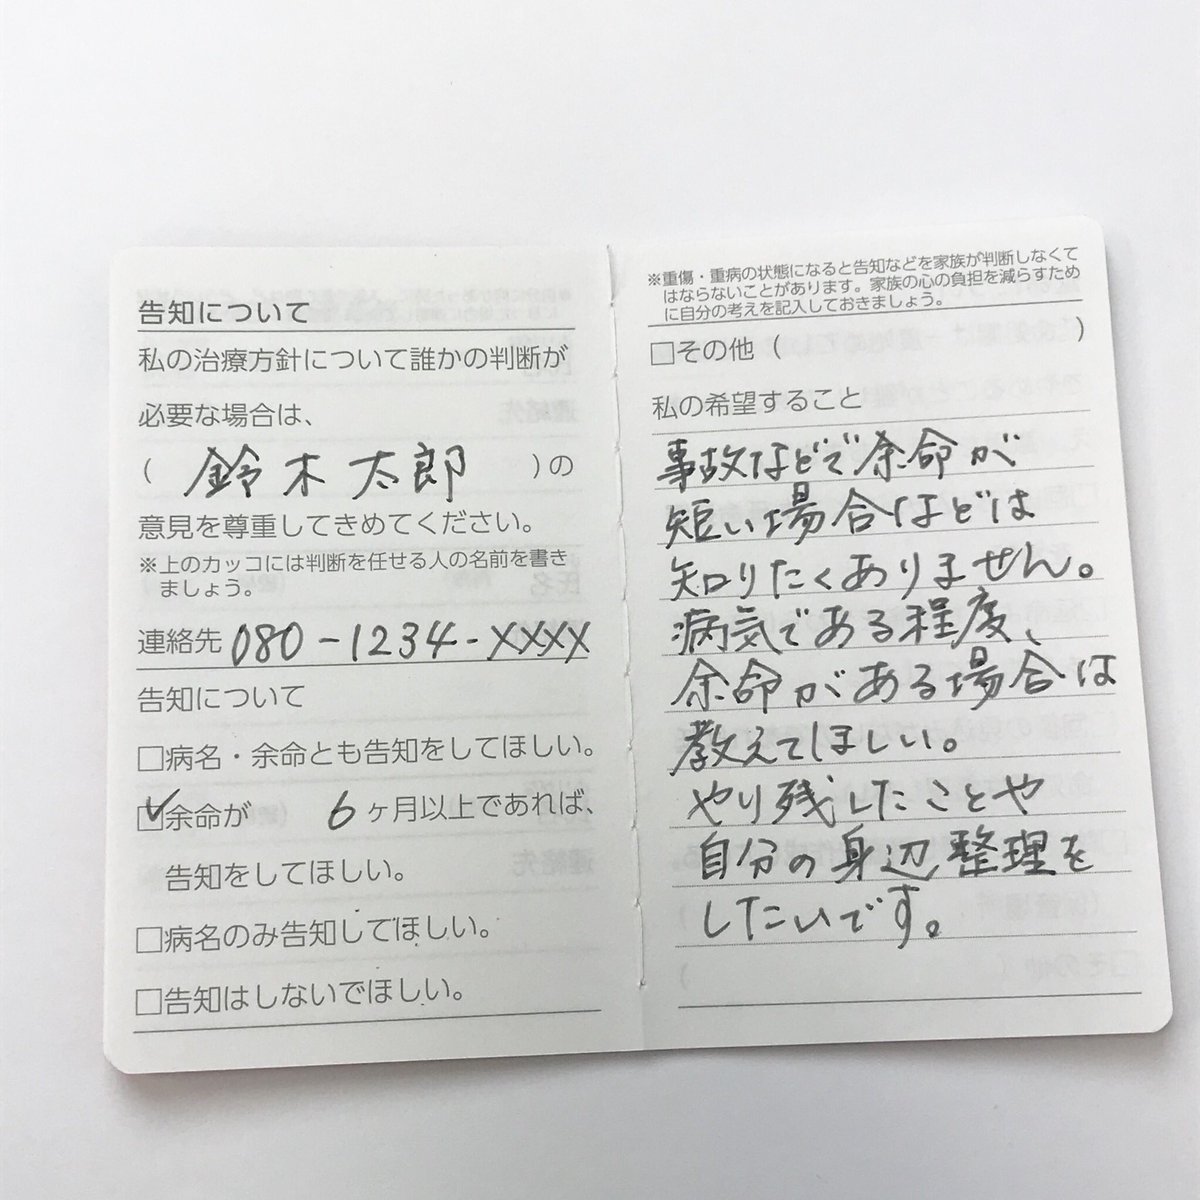 告知について
私の治療方針について誰かの判断が
必要な場合は、
( 鈴木太郎 )の
意見を尊重してきめてください。
※上のカッコには判断を任せる人の名前を書き
ましょう。
連絡先 080-1234-XXXX
告知について
□病名・余命とも告知をしてほしい。
☑余命が 6ヶ月以上であれば、
告知をしてほしい。
□病名のみ告知してほしい。
□告知はしないでほしい。
※重傷・重病の状態になると告知などを家族が判断しなくて
はならないことがあります。家族の心の負担を減らすため
に自分の考えを記入しておきましょう。
□その他 ( )
私の希望すること
事故などで余命が
短い場合などは
知りたくありません。
病気である程度、
余命がある場合は
教えてほしい。
やり残したことや
自分の身辺整理を
したいです。